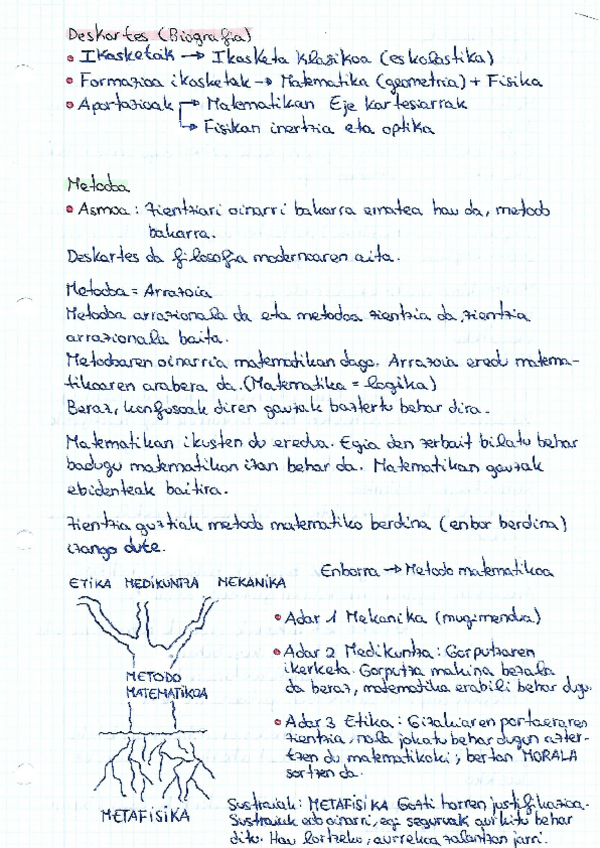 Deskartes (Biografia)
• Ikasketak → Ikasketa klasikoa (eskolastika)
• Formazioa ikasketak → Matematika (geometria) + Fisika
• Aportazioak → Matematikan Eje kartesiarrak
→ Fisikan inertzia eta optika
Metodoa
• Asmoa: zientziari oinarri bakarra ematea hau da, metodo
bakarra.
Deskartes da filosofia modernoaren aita.
Metodoa = Arrazoia
Metodoa arrazionala da eta metodoa zientzia da, zientzia
arrazionala baita.
Metodoaren oinarria matematikan dago. Arrazoia eredu matema-
tikoaren arabera da. (Matematika = logika)
Beraz, konfusoak diren gauzak baztertu behar dira.
Matematikan ikusten du eredua. Egia den zerbait bilatu behar
badugu matematikan izan behar da. Matematikan gauzak
ebidenteak baitira.
Zientzia guztiak metodo matematiko berdina (enbor berdina)
izango dute.
Enborra → Metodo matematikoa
ETIKA MEDIKUNTZA MEKANIKA
METODO
MATEMATIKOA
METAFISIKA
• Adar 1 Mekanika (mugimendua)
• Adar 2 Medikuntza: Gorputzaren
ikerketa. Gorputza makina bezala
da beraz, matematika erabili behar dugu.
• Adar 3 Etika: Gizakiaren portaeraren
zientzia, nola jokatu behar dugun azter-
tzen du matematikoki; bertan MORALA
sortzen da.
Sustraiak: METAFISIKA Guzti horren justifikazioa.
Sustraiak edo oinarri, egi seguruak aurkitu behar
ditu. Hau lortzeko, aurrekoa zalantzan jarri.